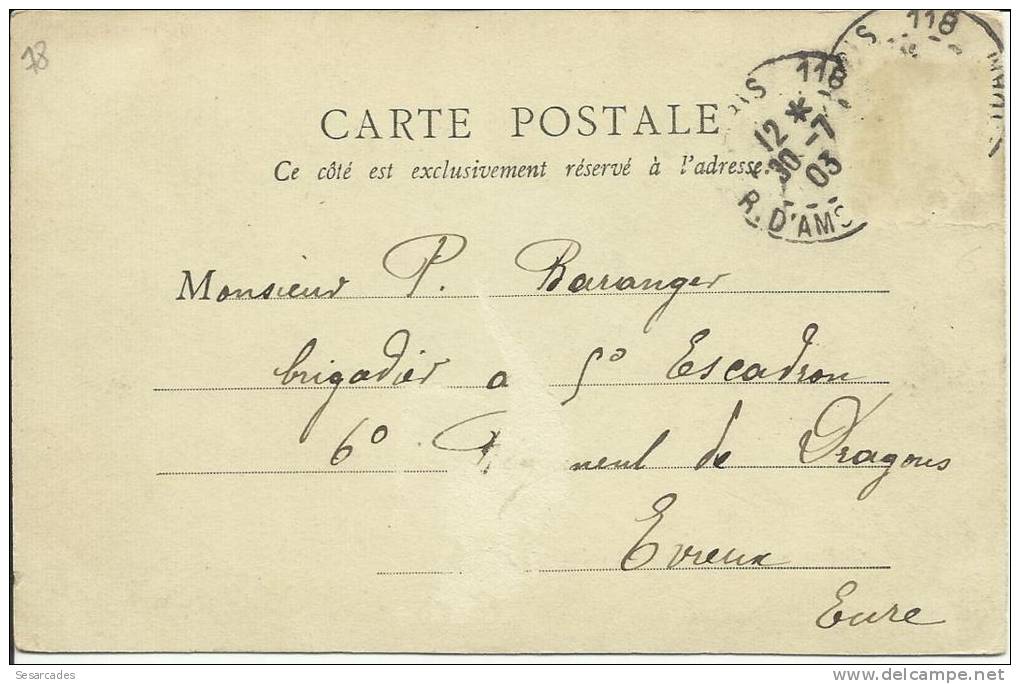 78
118
118
CARTE POSTALE
Ce côté est exclusivement réservé à l'adresse.
12 * 7
30 03
R. D'AMS
Monsieur P. Baranger
brigadier a 5º Escadron
6º Regiment de Dragons
Evreux
Eure
Sesarcades
www.delcampe.net